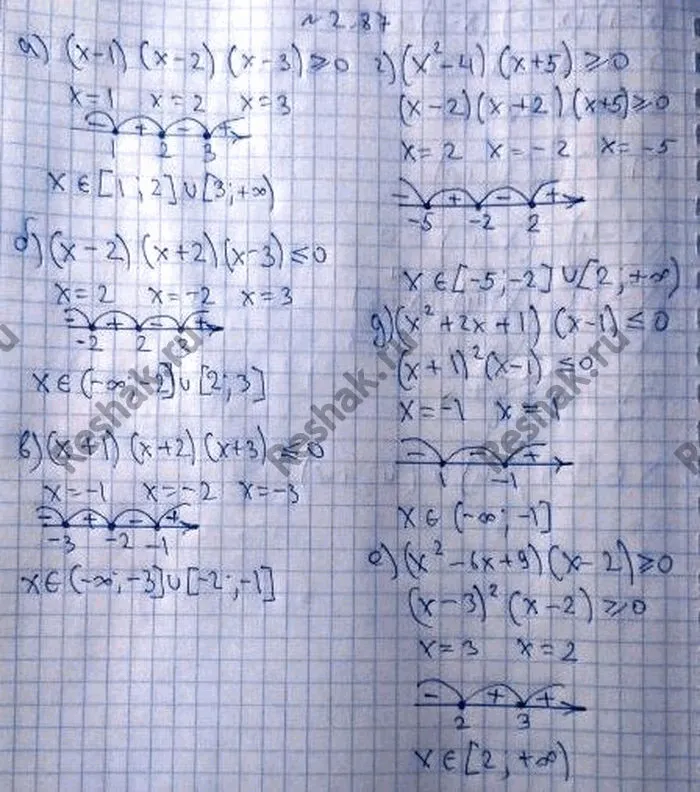 № 2.87
а) (x-1) (x-2) (x-3) ≥ 0
x=1 x=2 x=3
- + - +
1 2 3
x ∈ [1; 2] ∪ [3; +∞)
б) (x-2) (x+2) (x-3) ≤ 0
x=2 x=-2 x=3
- + - +
-2 2 3
x ∈ (-∞; -2] ∪ [2; 3]
в) (x+1) (x+2) (x+3) ≤ 0
x=-1 x=-2 x=-3
- + - +
-3 -2 -1
x ∈ (-∞; -3] ∪ [-2; -1]
г) (x²-4) (x+5) ≥ 0
(x-2) (x+2) (x+5) ≥ 0
x=2 x=-2 x=-5
- + - +
-5 -2 2
x ∈ [-5; -2] ∪ [2; +∞)
д) (x²+2x+1) (x-1) ≤ 0
(x+1)² (x-1) ≤ 0
x=-1 x=1
- - +
1 -1
x ∈ (-∞; -1]
е) (x²-6x+9) (x-2) ≥ 0
(x-3)² (x-2) ≥ 0
x=3 x=2
- + +
2 3
x ∈ [2; +∞)
Reshak.ru
Reshak.ru
Reshak.ru
Reshak.ru